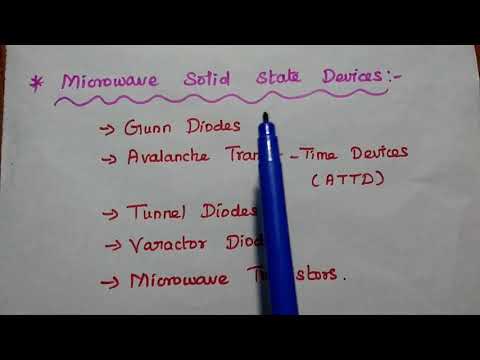 * Microwave Solid State Devices:-
→ Gunn Diodes
→ Avalanche - Time Devices
(ATTD)
→ Tunnel Diodes
→ Varactor
→ Microwave